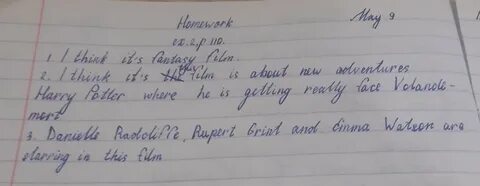 Homework
May 9
ex.2.p 110.
1. I think it's fantasy film.
2. I think it's film is about new adventures
Harry Potter where he is getting really face Volande-
mort
3. Danielle Radcliffe, Rupert Grint and Emma Watson are
starring in this film